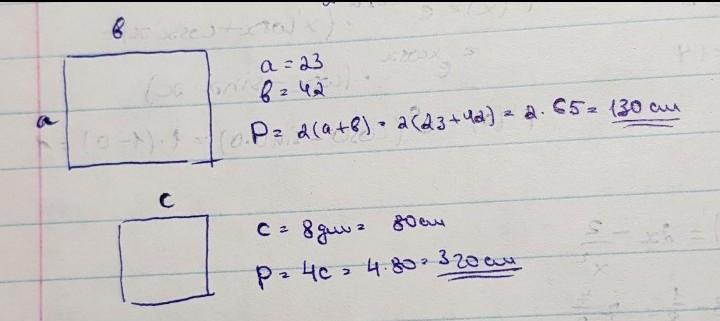 в
a
a = 23
в = 42
P = 2(a+в) = 2(23+42) = 2.65 = 130 cm
c
c = 8 дm = 80 cm
P = 4c = 4.80 = 320 cm